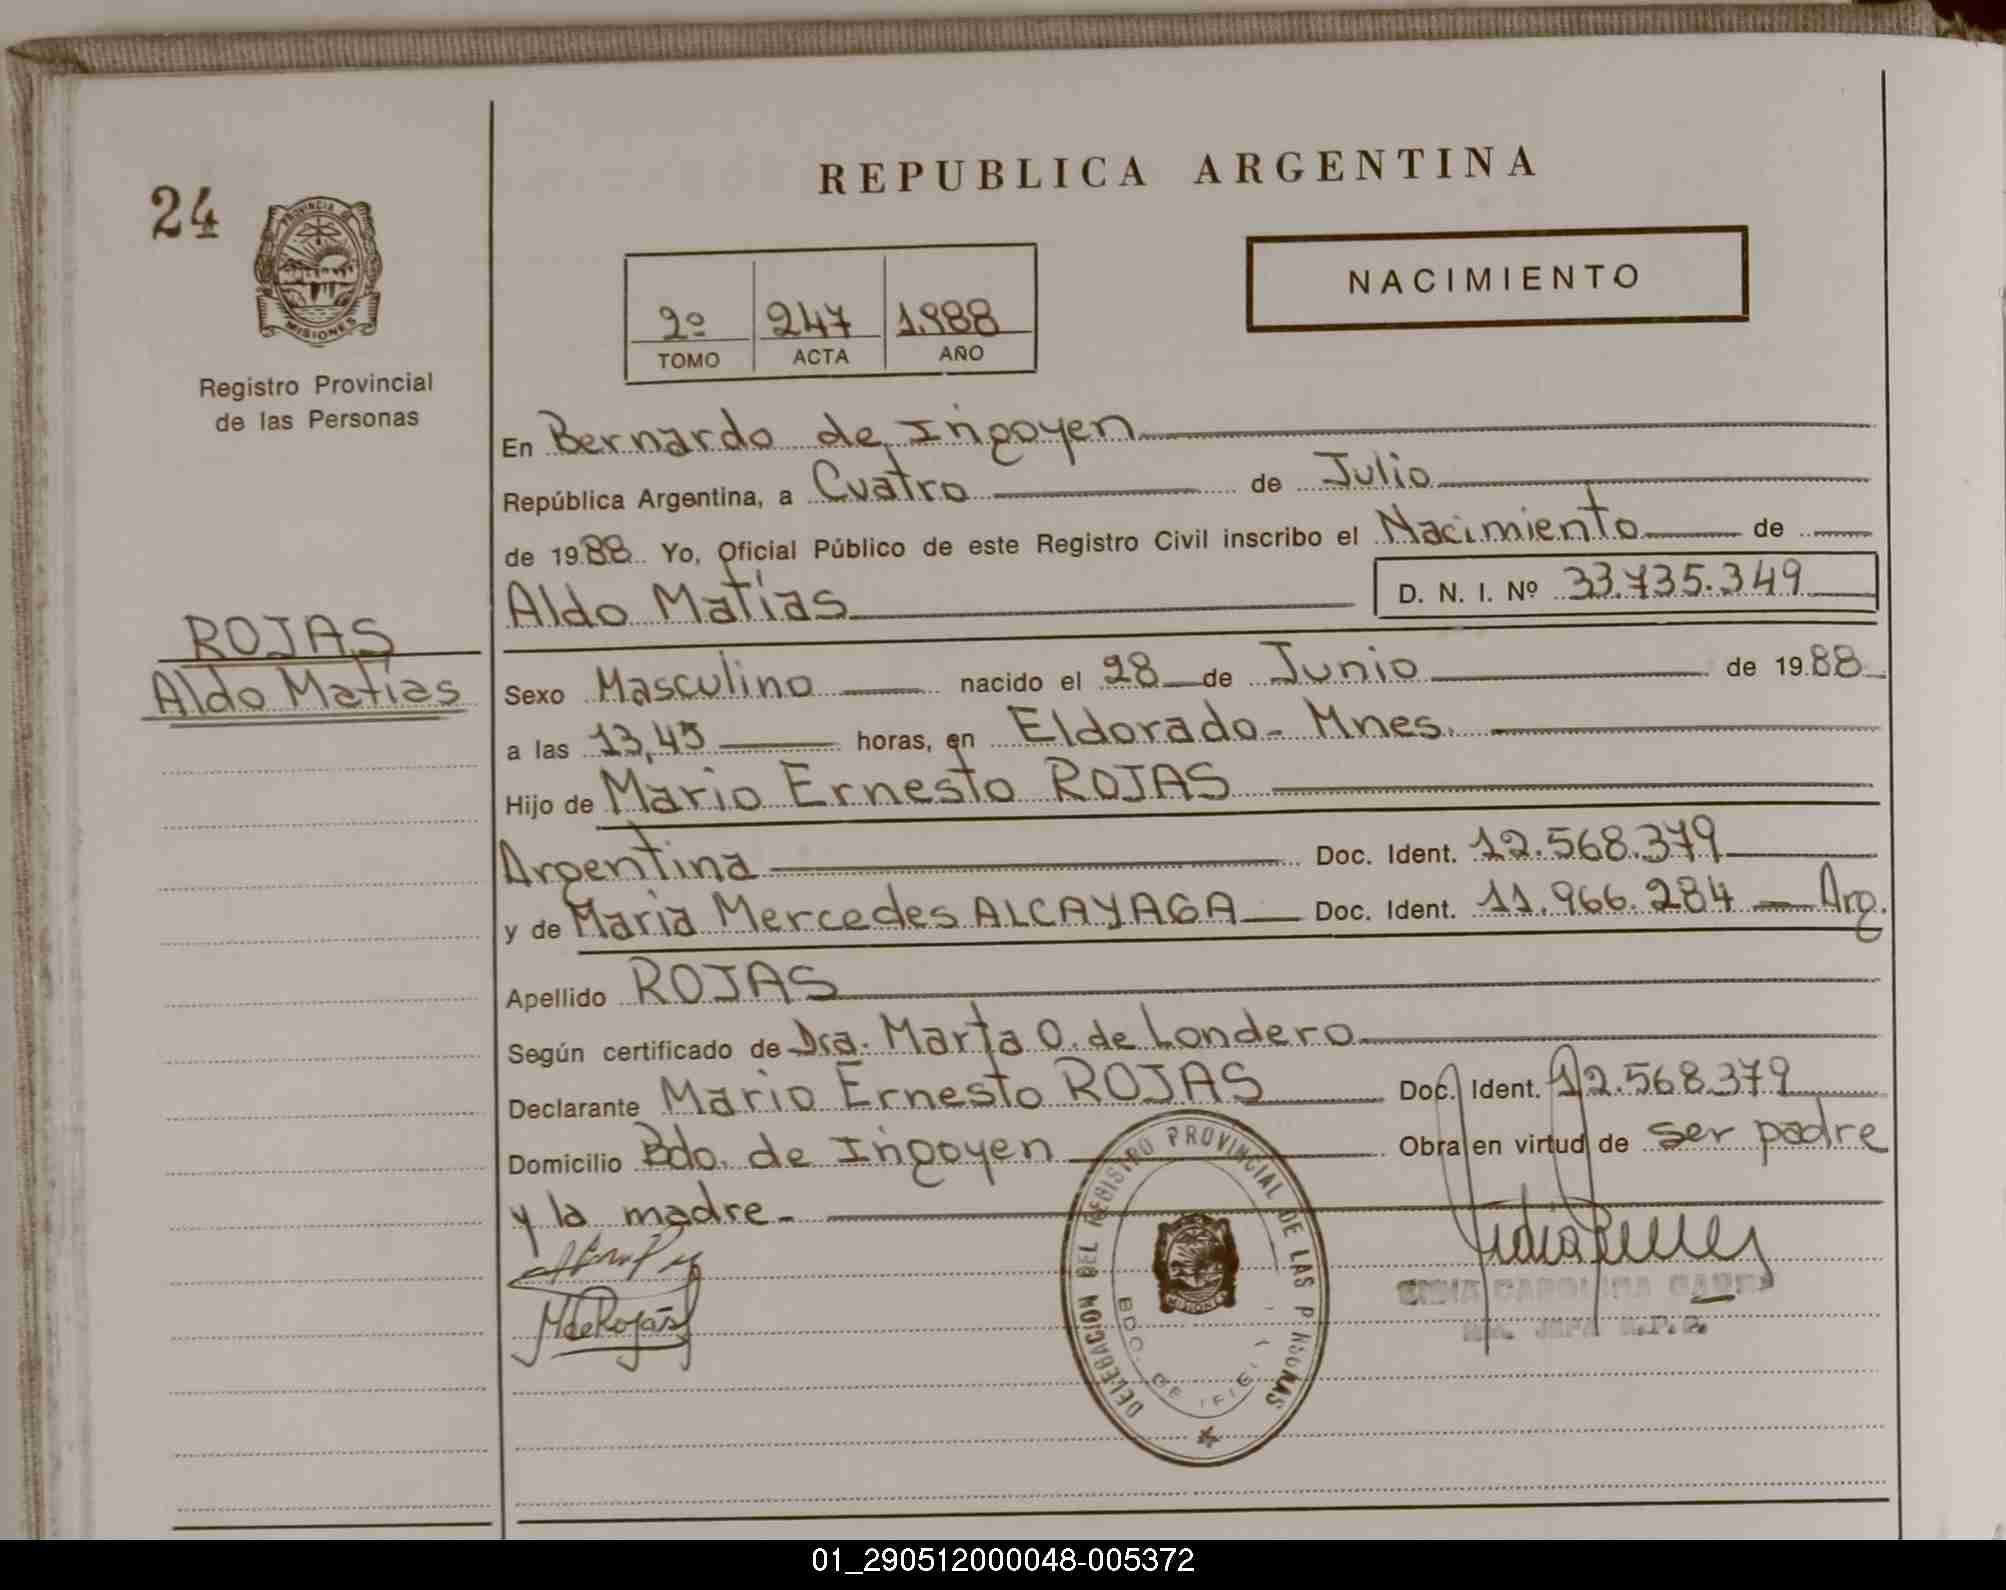 REPUBLICA ARGENTINA
24
PROVINCIA DE
MISIONES
Registro Provincial
de las Personas
NACIMIENTO
2º 247 1.988
TOMO ACTA AÑO
En Bernardo de Irigoyen
República Argentina, a Cuatro de Julio
de 1988 Yo, Oficial Público de este Registro Civil inscribo el Nacimiento de
Aldo Matias D. N. I. Nº 33.735.349
ROJAS
Aldo Matias
Sexo Masculino nacido el 28 de Junio de 1988
a las 13,45 horas, en Eldorado - Mnes.
Hijo de Mario Ernesto ROJAS
Argentina Doc. Ident. 12.568.379
y de Maria Mercedes ALCAYAGA Doc. Ident. 11.966.284 - Arg.
Apellido ROJAS
Según certificado de Dra. Marta O. de Londero
Declarante Mario Ernesto ROJAS Doc. Ident. 12.568.379
Domicilio Bdo. de Irigoyen Obra en virtud de ser padre
y la madre -
MdeRojas
DELEGACION DEL REGISTRO PROVINCIAL DE LAS
BDO. DE
MISIONES
CAROLINA
JEFA
01_290512000048-005372